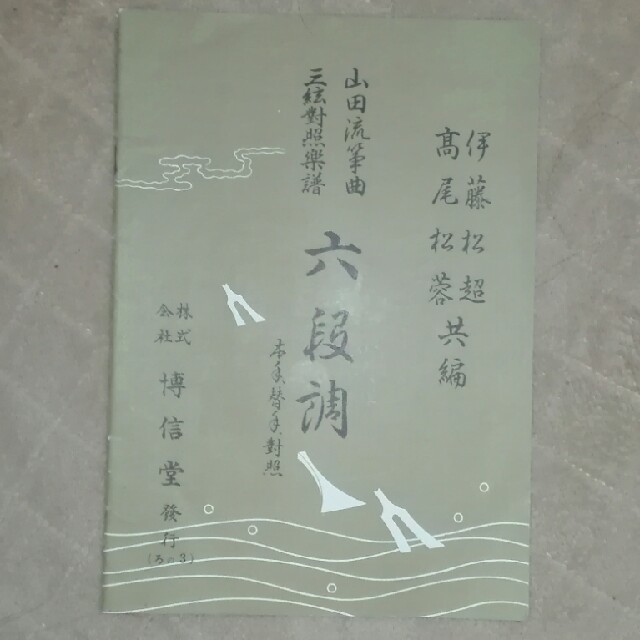 伊藤松超
髙尾松蓉共編
山田流箏曲
三絃對照樂譜
六段調
本手替手對照
株式会社 博信堂發行
(ろ.3)